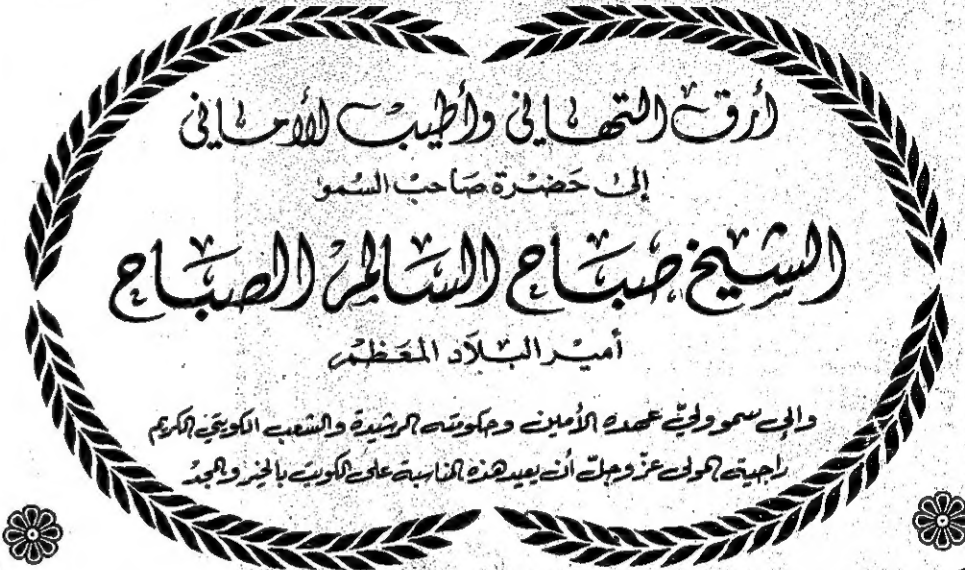 أرق التهاني وأطيب الأماني
إلى حضرة صاحب السمو
الشيخ صباح السالم الصباح
أمير البلاد المعظم
والى سمو ولي عهده الأمين وحكومته الرشيدة والشعب الكويتي الكريم
راجية المولى عز وجل أن يعيد هذه المناسبة على الكويت بالخير والمجد